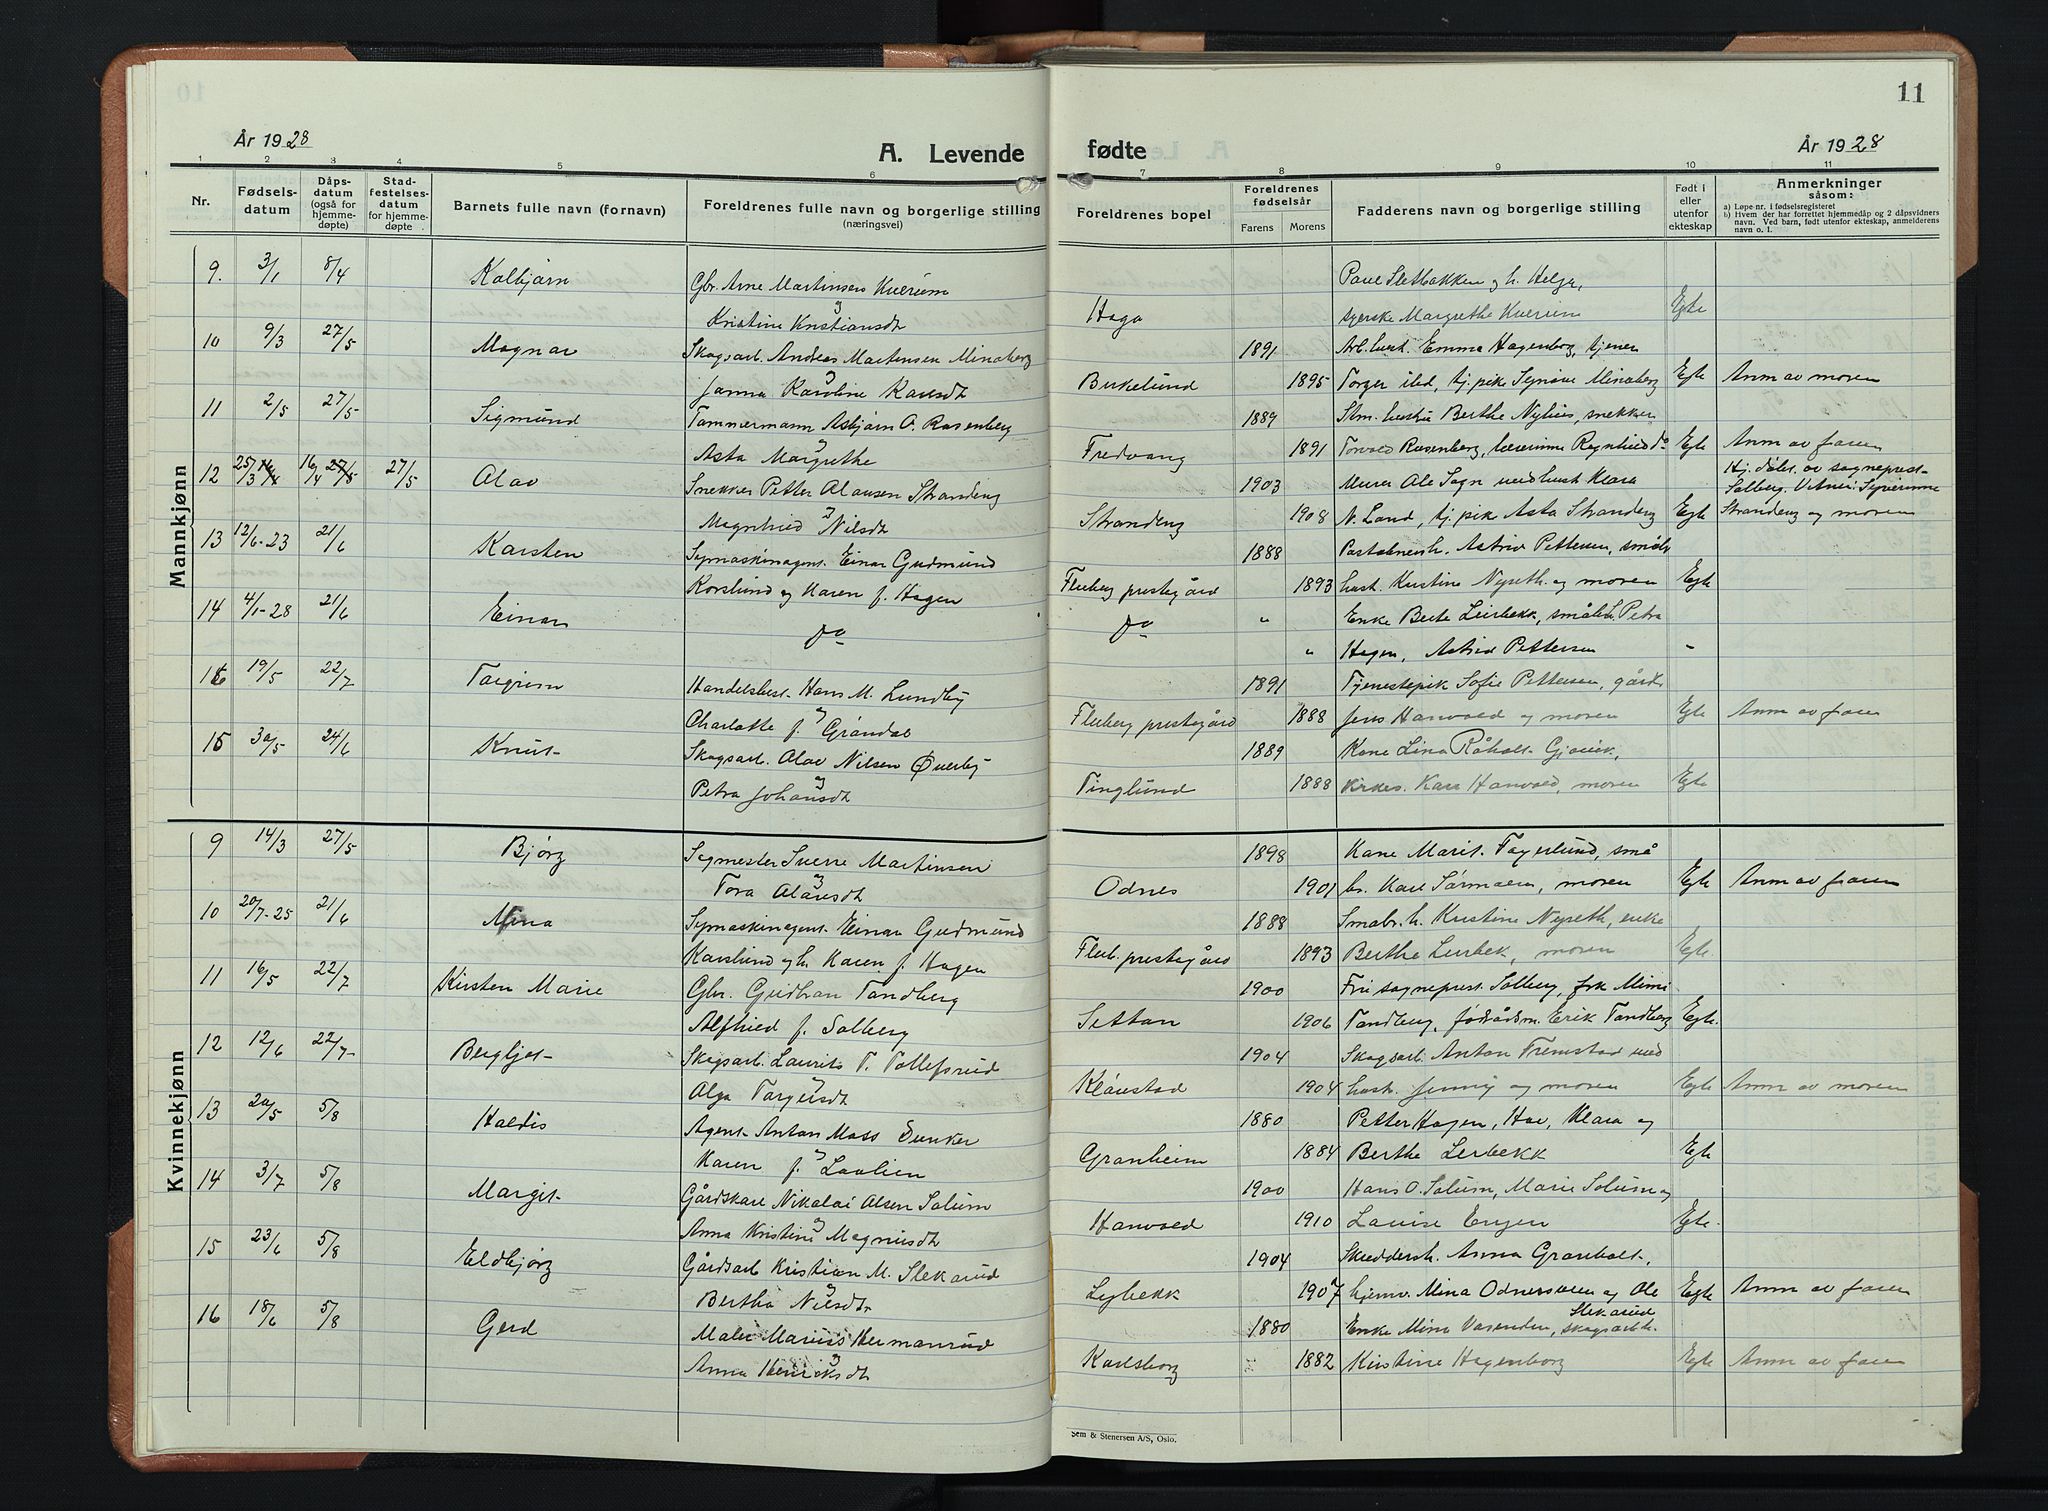 11
År 1928
A. Levende fødte
År 1928
1 2 3 4 5 6 7 8 9 10 11
Nr.
Fødsels-
datum
Dåps-
datum
(også for
hjemme-
døpte)
Stad-
festelses-
datum
for hjemme-
døpte
Barnets fulle navn (fornavn)
Foreldrenes fulle navn og borgerlige stilling
(næringsvei)
Foreldrenes bopel
Foreldrenes
fødselsår
Farens Morens
Fadderens navn og borgerlige stilling
Født i
eller
utenfor
ekteskap
Anmerkninger
såsom:
a) Løpe-nr. i fødselsregisteret
b) Hvem der har forrettet hjemmedåp og 2 dåpsvidners
navn. Ved barn, født utenfor ekteskap, anmelderens
navn o. l.
Mannkjønn
9. 3/1 8/4 Kolbjørn Gbr. Arne Martinsen Kverum
Kristine Kristiansdt
Haga
Paul Sletbakken og h. Helga,
syerske Margrethe Kverum Egte
10 9/3 27/5 Magnar Skogsarb. Andreas Martinsen Minaberg
Janna Karoline
Birkelund 1891 1895
Arb. hust. Emma Hagenborg, tjener
Torger ibd, tj. pik Synøve Minaberg Egte Anm av moren
11 2/5 27/5 Sigmund Tømmermann Asbjørn O. Rosenberg
Asta Margrethe
Fredvang 1889 1891
Berthe Nyhus, snekker
Torvald Rosenberg, lærerinne Ragnhild do Egte Anm av faren
12 25/3 16/4 27/5 27/5 Olav Snekker Petter Olausen Strandeng
Magnhild Nilsdt
Strandeng 1903 1908
Murer Ole Sogn med hust Klara
N. Land, tj. pik Asta Strandeng Egte
Hj. døbt av sogneprest
Solberg. Vitner: Syverinne
Strandeng og moren
13 12/6-23 21/6 Karsten Symaskinagent Einar Gudmund
Korslund og Karen f. Hagen
Fluberg prestegård 1888 1893
Astrid Pettersen, småbr
hust. Kristine Nyreth. og moren Egte
14 4/1-28 21/6 Einar do do " "
Enke Berte Leirbekk, småbr. Petra
Hagen, Astrid Pettersen "
16 19/5 22/7 Torgrim Handelsbest. Hans M. Lundby
Charlotte f. Grøndal
Fluberg prestegård 1891 1888
Tjenestepik Sofie Pettersen, gårdb
Jens Hanvold og moren Egte Anm av faren
15 30/5 24/6 Knut Skogsarb. Olav Nilsen Øverby
Petra Johansdt
Tinglund 1889 1888
Kone Lina Råholt Gjøvik,
kirkes. Kare Hanvold, moren Egte
Kvinnekjønn
9 14/3 27/5 Bjørg Sagmester Sverre Martinsen
Tora Olausdt
Odnes 1898 1901
Kone Marit Fagerlund, små
br. Karl Sørmoen, moren Egte Anm av faren
10 20/7-25 21/6 Mina Symaskinagent Einar Gudmund
Korslund og h. Karen f. Hagen
Flub. prestegård 1888 1893
Småbr. h. Kristine Nyreth, enke
Berthe Leirbek, moren Egte.
11 16/5 22/7 Kirsten Marie Gbr. Gudbran Tandberg
Alfhild f. Solberg
Settan 1900 1906
Fru sogneprest Solberg, frk Mimi
Tandberg, Erik Tandberg Egte.
12 12/6 22/7 Bergljot Skogsarb. Laurits T. Tollefsrud
Olga Torgersdt
Klåustad 1904 1904
Skogsarb. Anton Fremstad med
hust. Jenny og moren Egte Anm av moren
13 20/5 5/8 Haldis Agent Anton Moss Dunker
Karen f. Laulien
Granheim 1880 1884
Petter Hagen, Hov, Klara og
Berthe Lerbekk Egte
14 3/7 5/8 Margit Gårdskarl Nikolai Olsen Solum
Anna Kristine Magnusdt
Hanvold 1900 1910
Hans O. Solum, Marie Solum og
Louise Engen Egte.
15 23/6 5/8 Eldbjørg Gårdsarb Kristian M. Slekarud
Bertha Nilsdt
Lybekk 1904 1907
Skredderh. Anna Granholt,
hjemv. Mina Odnesveen og Ole
Slekarud Egte Anm av faren
16 18/6 5/8 Gerd Maler Marius Hermanrud
Anna Henriksdt
Karlsborg 1880 1882
Enke Mina Vasenden, skogsarbh.
Kristine Hagenborg Egte Anm av faren
Sem & Stenersen A/S, Oslo.